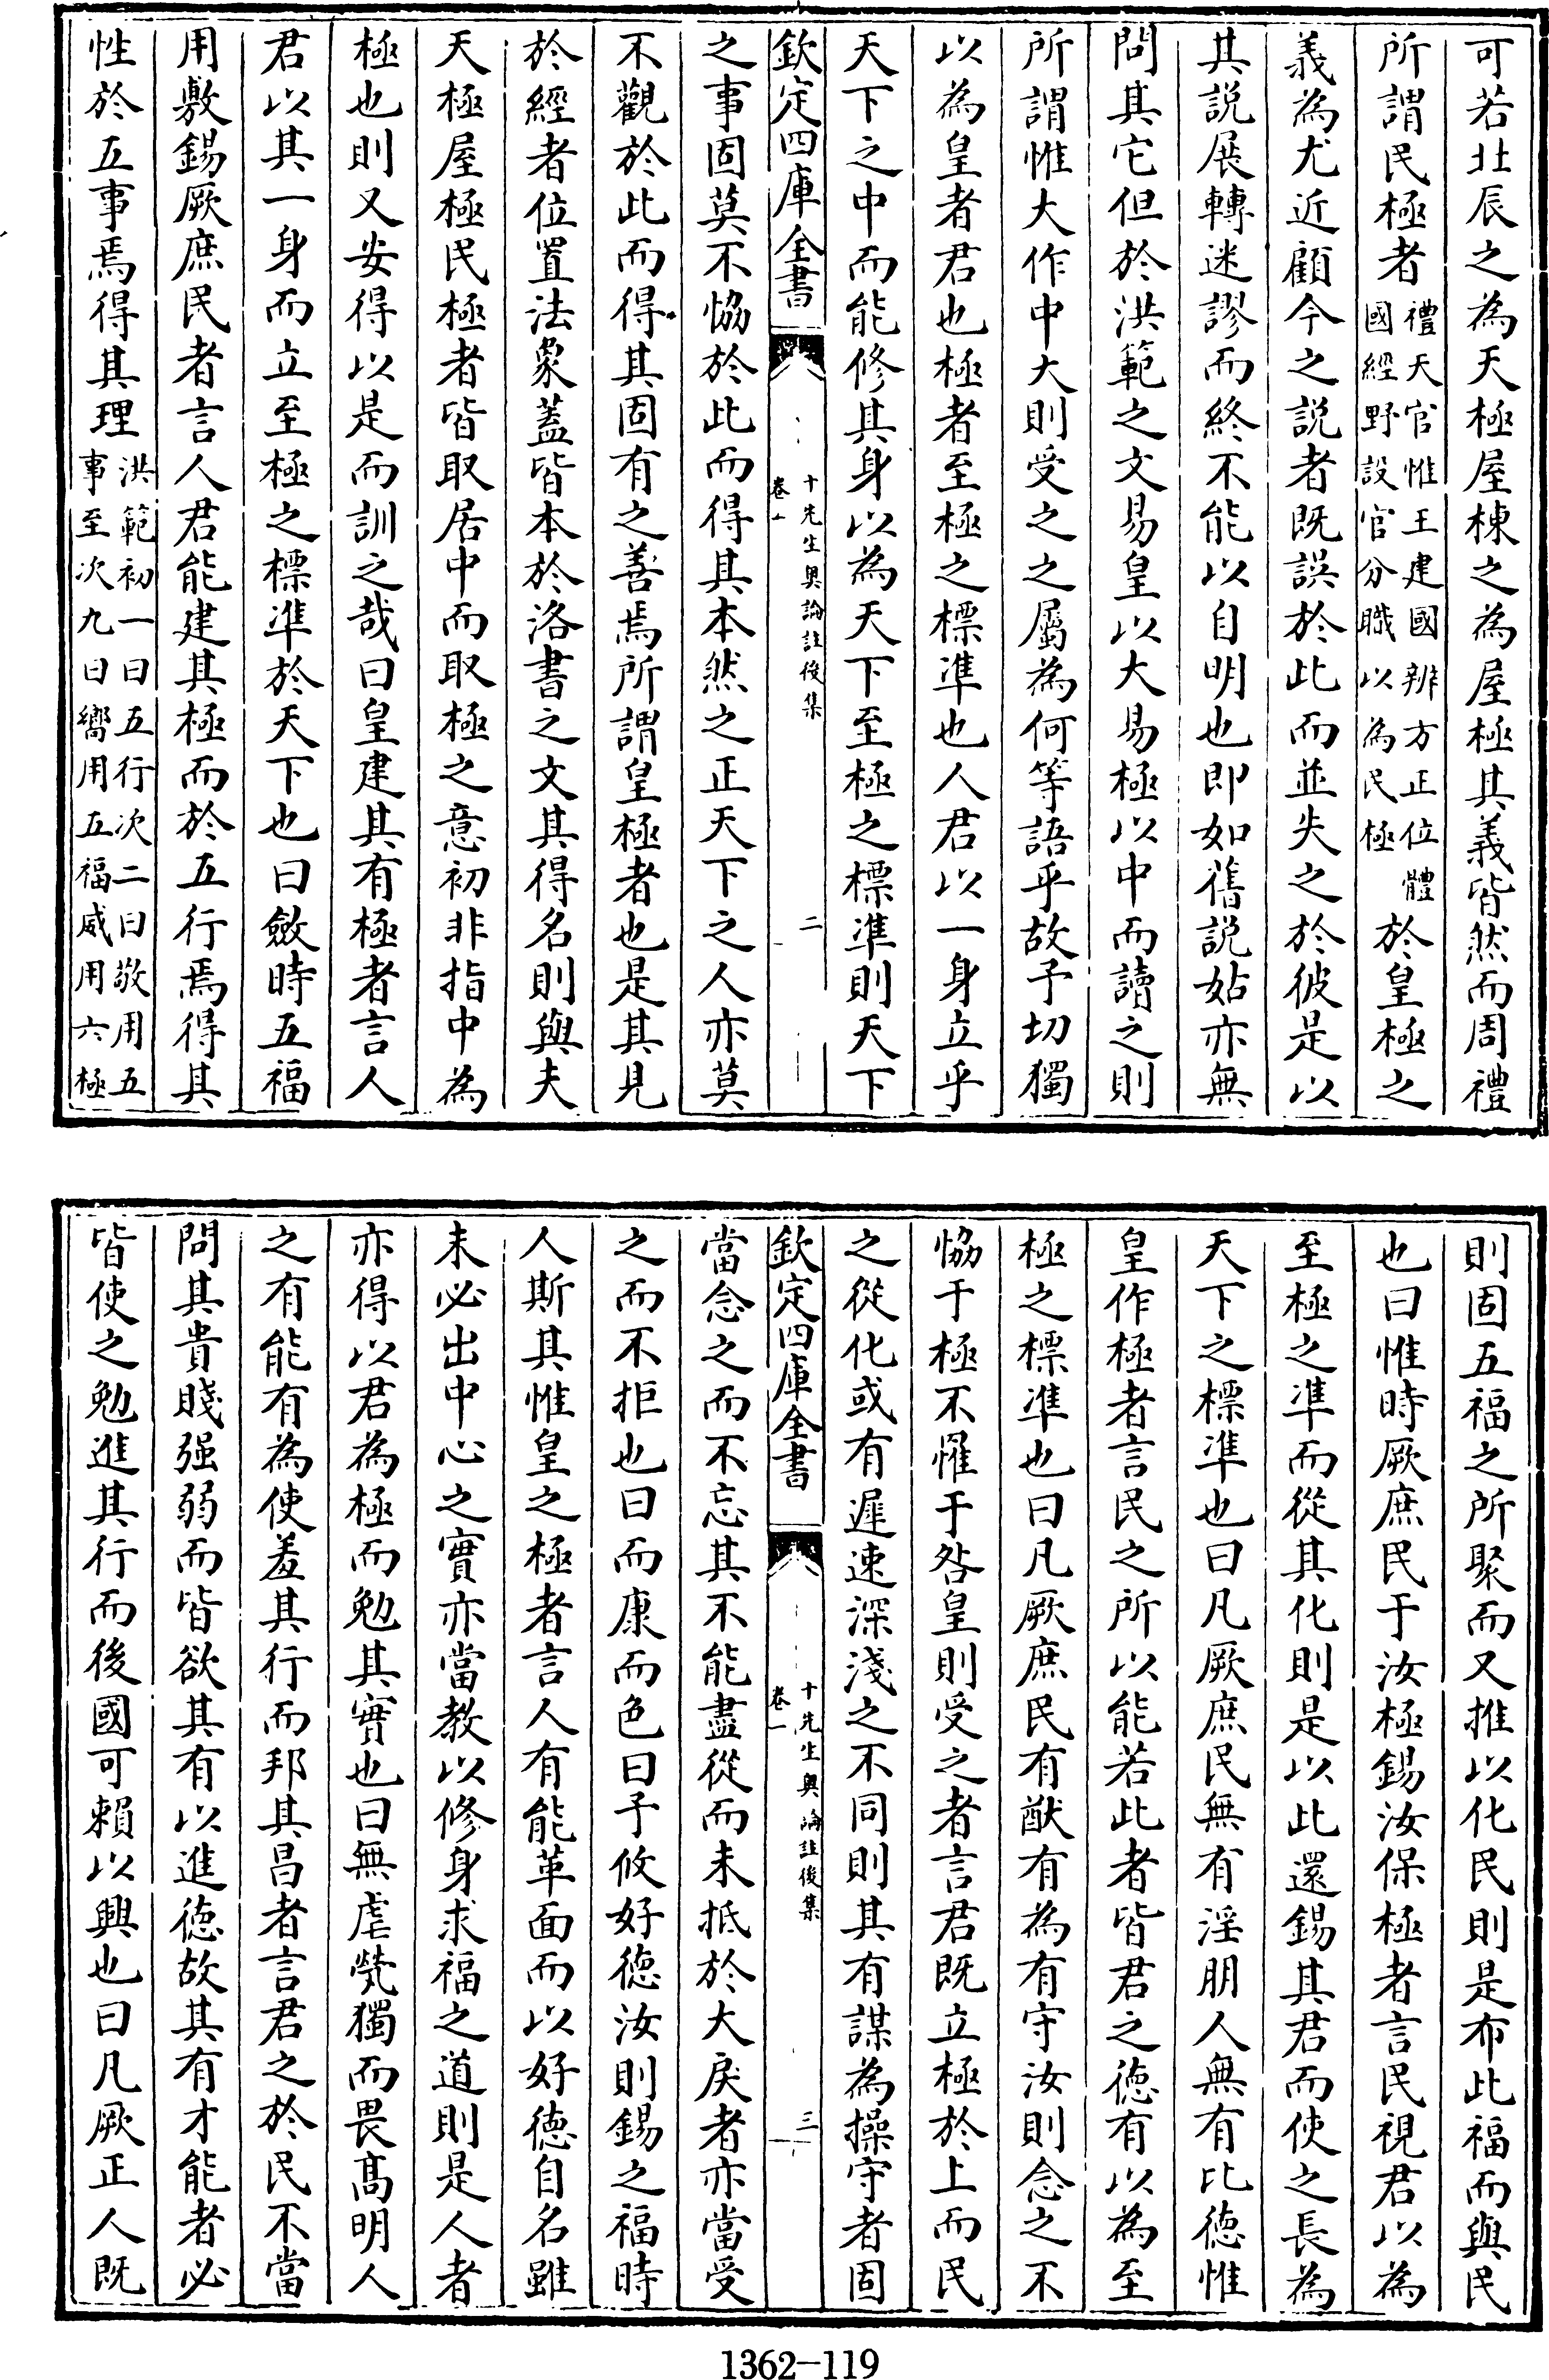 可若北辰之為天極屋棟之為屋極其義皆然而周禮
所謂民極者禮天官惟王建國辨方正位體國經野設官分職以為民極於皇極之
義為尤近顧今之説者既誤於此而並失之於彼是以
其説展轉迷謬而終不能以自明也即如舊説姑亦無
問其它但於洪範之文易皇以大易極以中而讀之則
所謂惟大作中大則受之之屬為何等語乎故予切獨
以為皇者君也極者至極之標凖也人君以一身立乎
天下之中而能修其身以為天下至極之標凖則天下
欽定四庫全書
十先生奧論註後集
卷一
二
之事固莫不恊於此而得其本然之正天下之人亦莫
不觀於此而得其固有之善焉所謂皇極者也是其見
於經者位置法象蓋皆本於洛書之文其得名則與夫
天極屋極民極者皆取居中而取極之意初非指中為
極也則又安得以是而訓之哉曰皇建其有極者言人
君以其一身而立至極之標凖於天下也曰斂時五福
用敷錫厥庶民者言人君能建其極而於五行焉得其
性於五事焉得其理洪範初一曰五行次二曰敬用五事至次九曰嚮用五福威用六極
則固五福之所聚而又推以化民則是布此福而與民
也曰惟時厥庶民于汝極錫汝保極者言民視君以為
至極之凖而從其化則是以此還錫其君而使之長為
天下之標凖也曰凡厥庶民無有淫朋人無有比德惟
皇作極者言民之所以能若此者皆君之德有以為至
極之標凖也曰凡厥庶民有猷有為有守汝則念之不
恊于極不懼于咎皇則受之者言君既立極於上而民
之從化或有遲速深淺之不同則其有謀為操守者固
欽定四庫全書
十先生奧論註後集
卷一
三
當念之而不忘其不能盡從而未抵於大戾者亦當受
之而不拒也曰而康而色曰予攸好德汝則錫之福時
人斯其惟皇之極者言人有能革面而以好德自名雖
未必出中心之實亦當教以修身求福之道則是人者
亦得以君為極而勉其實也曰無虐煢獨而畏髙明人
之有能有為使羞其行而邦其昌者言君之於民不當
問其貴賤强弱而皆欲其有以進德故其有才能者必
皆使之勉進其行而後國可賴以興也曰凡厥正人既
1362-119